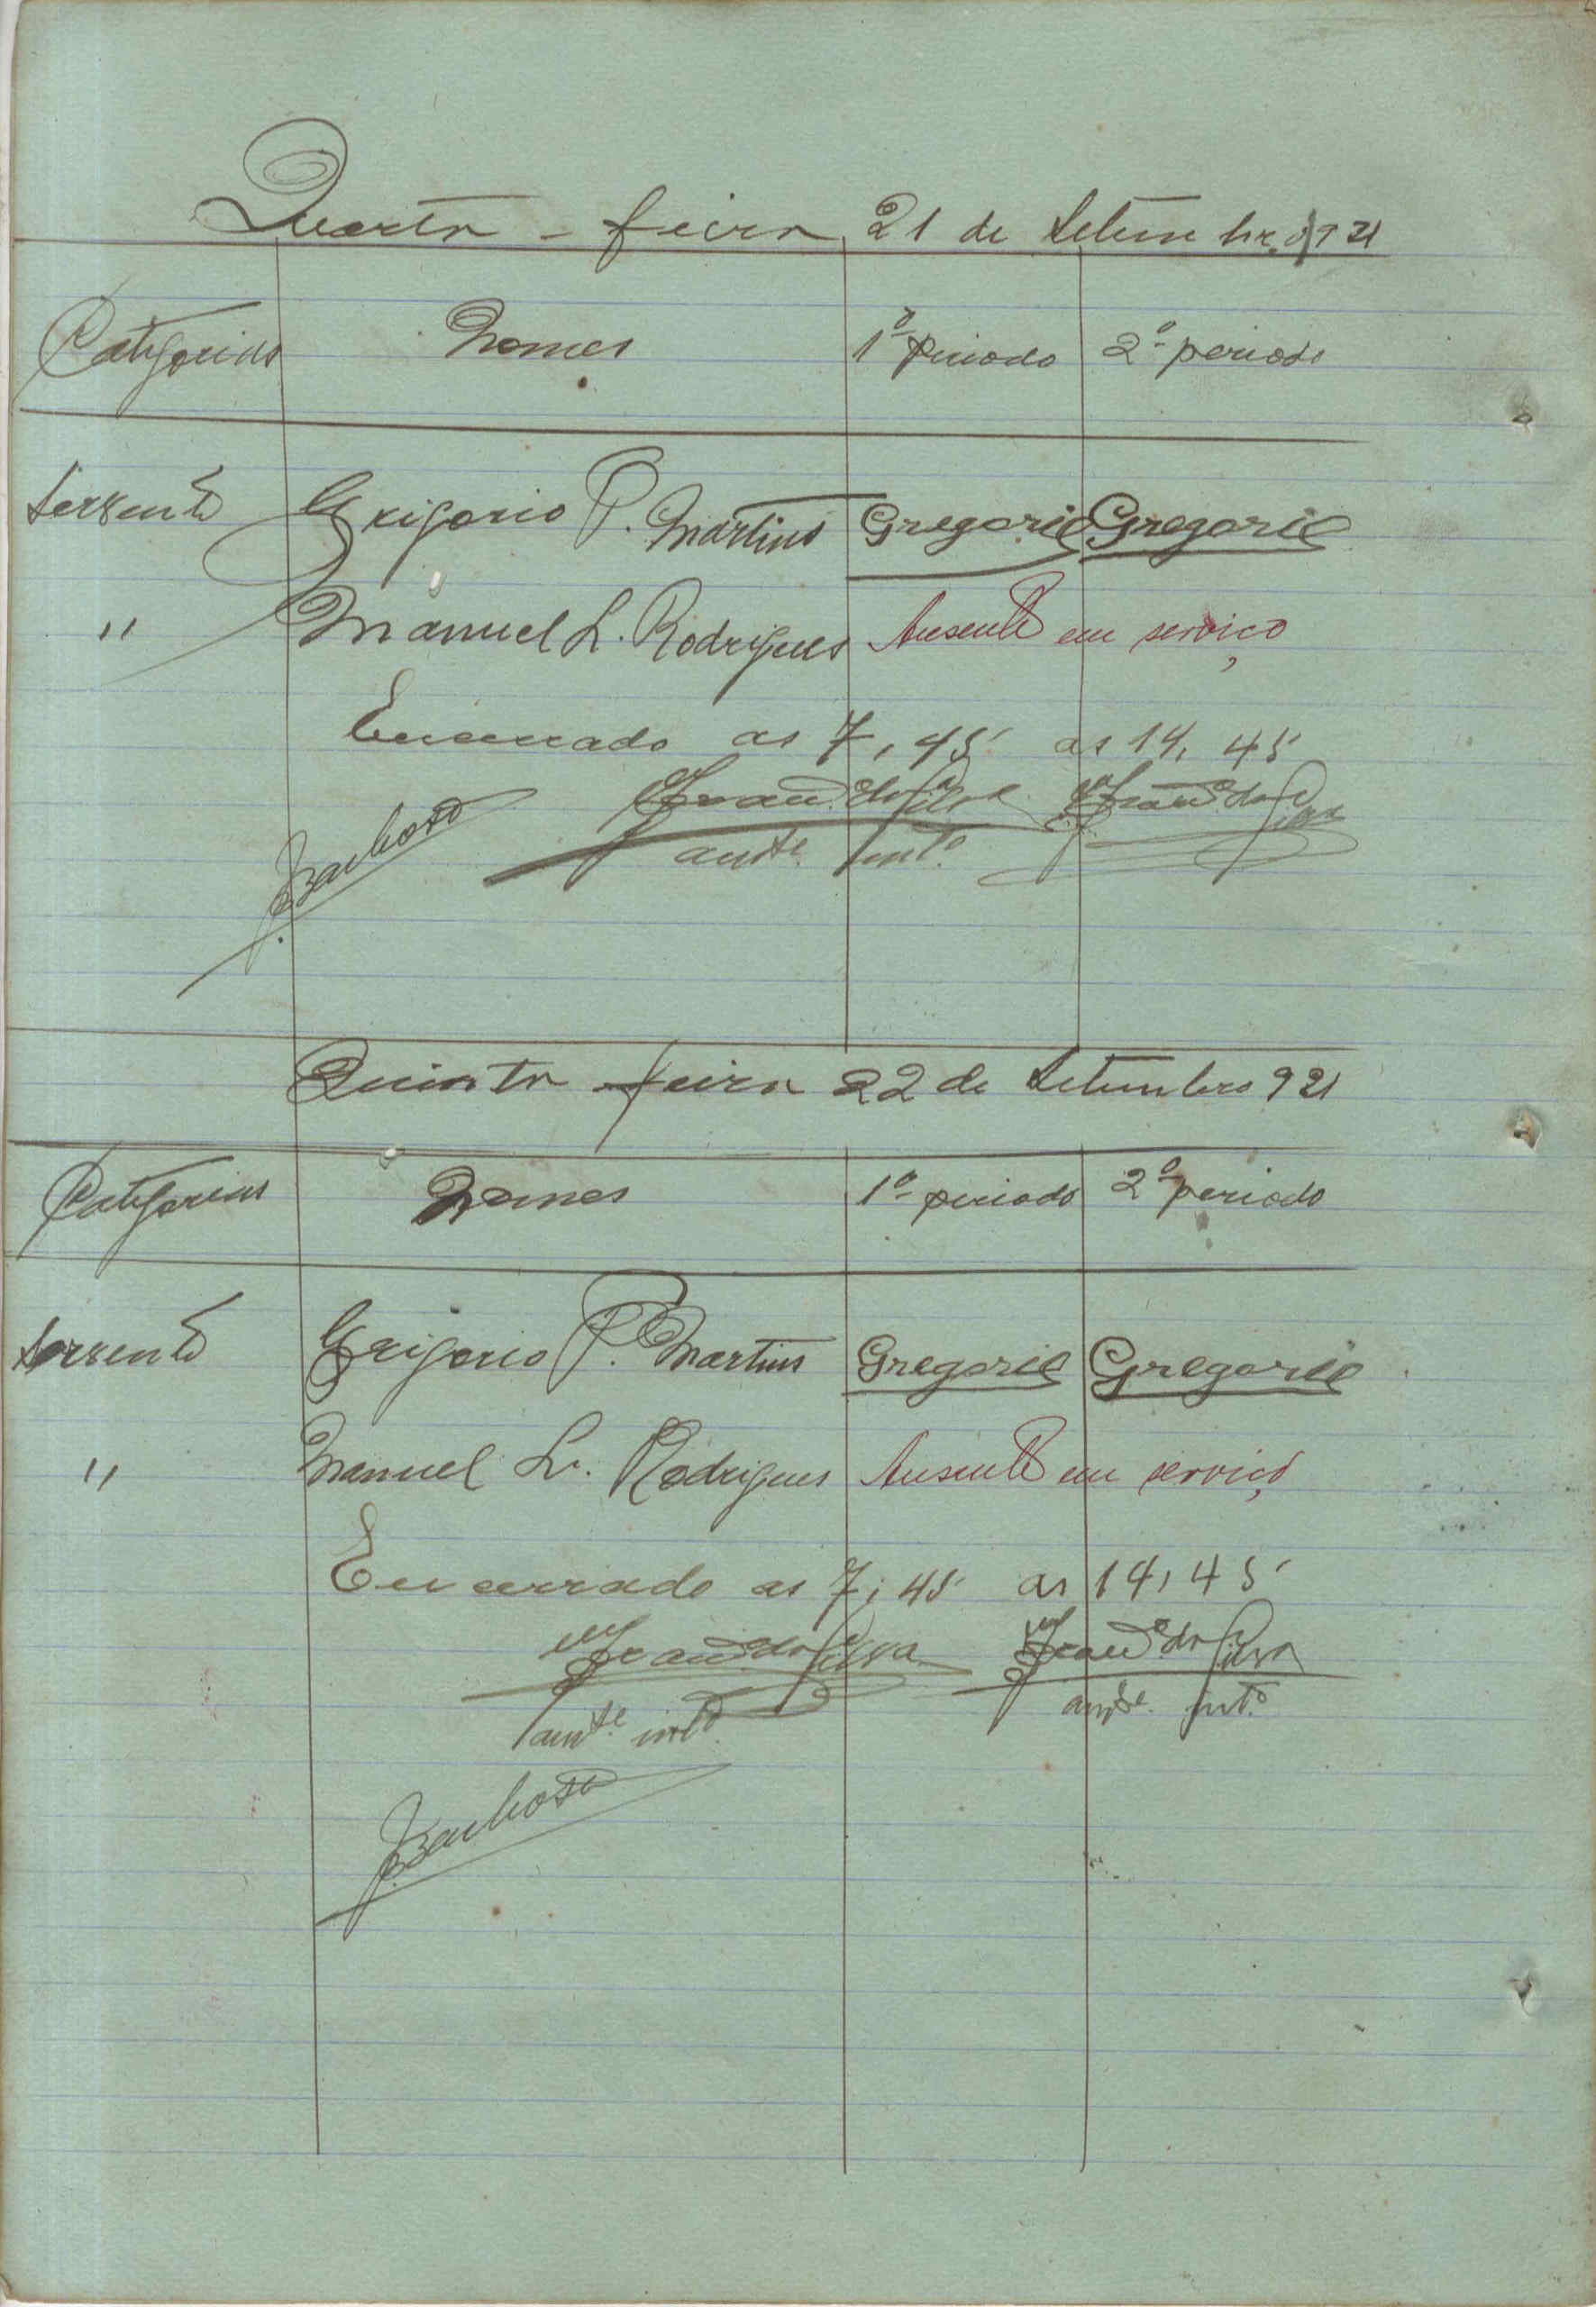 Quarta-feira 21 de Setembro 921
Categorias Nomes 1º periodo 2º periodo
Servente Grigorio P. Martins Gregorio Gregorio
" Manuel L. Rodrigues Ausente em serviço
Encerrado as 7,45' as 14,45'
da Silva da Silva
Barbosa
Quinta-feira 22 de Setembro 921
Categorias Nomes 1º periodo 2º periodo
Servente Grigorio P. Martins Gregorio Gregorio
" Manuel L. Rodrigues Ausente em serviço
Encerrado as 7,45' as 14,45'
da Silva da Silva
Barbosa